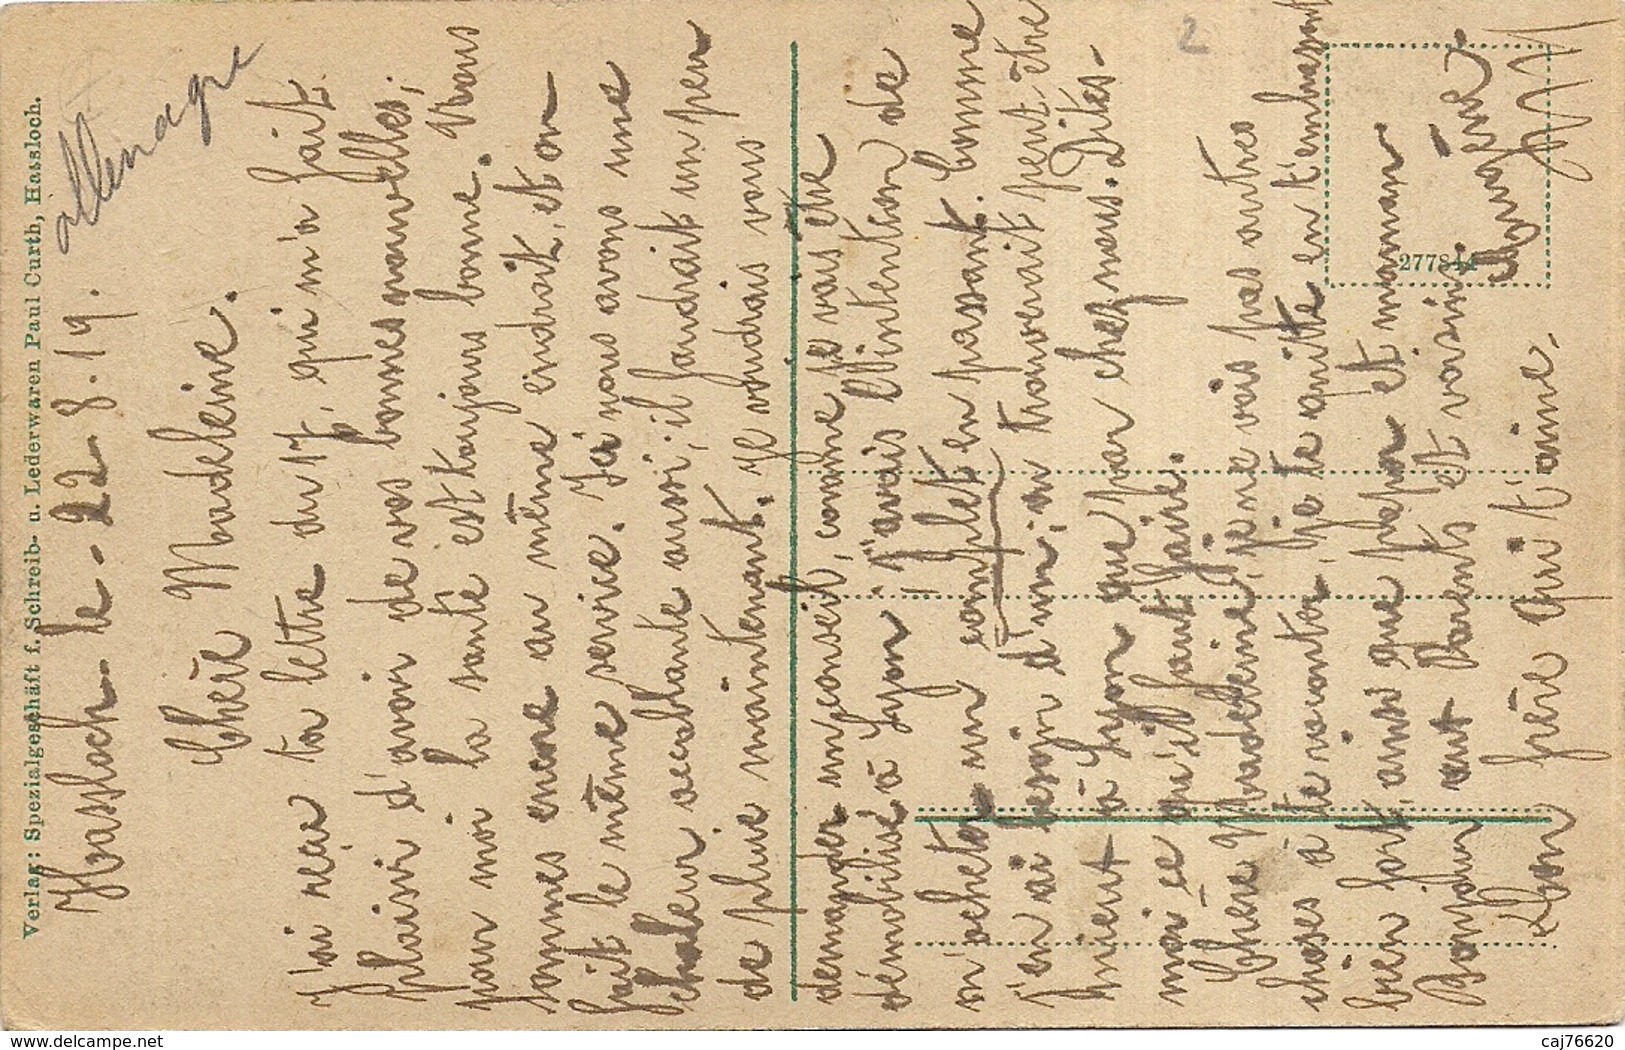 Verlag: Spezialgeschäft f. Schreib- u. Lederwaren Paul Curth, Hassloch.
allemagne
Hassloch le 22-8-19.
Chère Madeleine.
J'ai reçu ta lettre du 17, qui m'a fait
plaisir d'avoir de vos bonnes nouvelles;
pour moi la santé est toujours bonne. Nous
sommes encore au même endroit, et on
fait le même service. Ici nous avons une
chaleur accablante aussi, il faudrait un peu
de pluie maintenant. Je voudrais vous
demander un conseil, comme je vais être
démobilisé à Lyon j'avais l'intention de
m'acheter un complet en passant. Comme
j'en ai besoin d'un, on trouverait peut-être
mieut à Lyon que par chez nous. Dites-
moi ce qu'il faut faire.
Chère Madeleine, je ne vois pas autres
choses à te raconter, je te quitte en t'embrassant
bien fort, ainsi que papa et maman
Bonjour aut Parents et voisins
Ton frère qui t'aime,
Eugène
2
277844
caj76620
www.delcampe.net